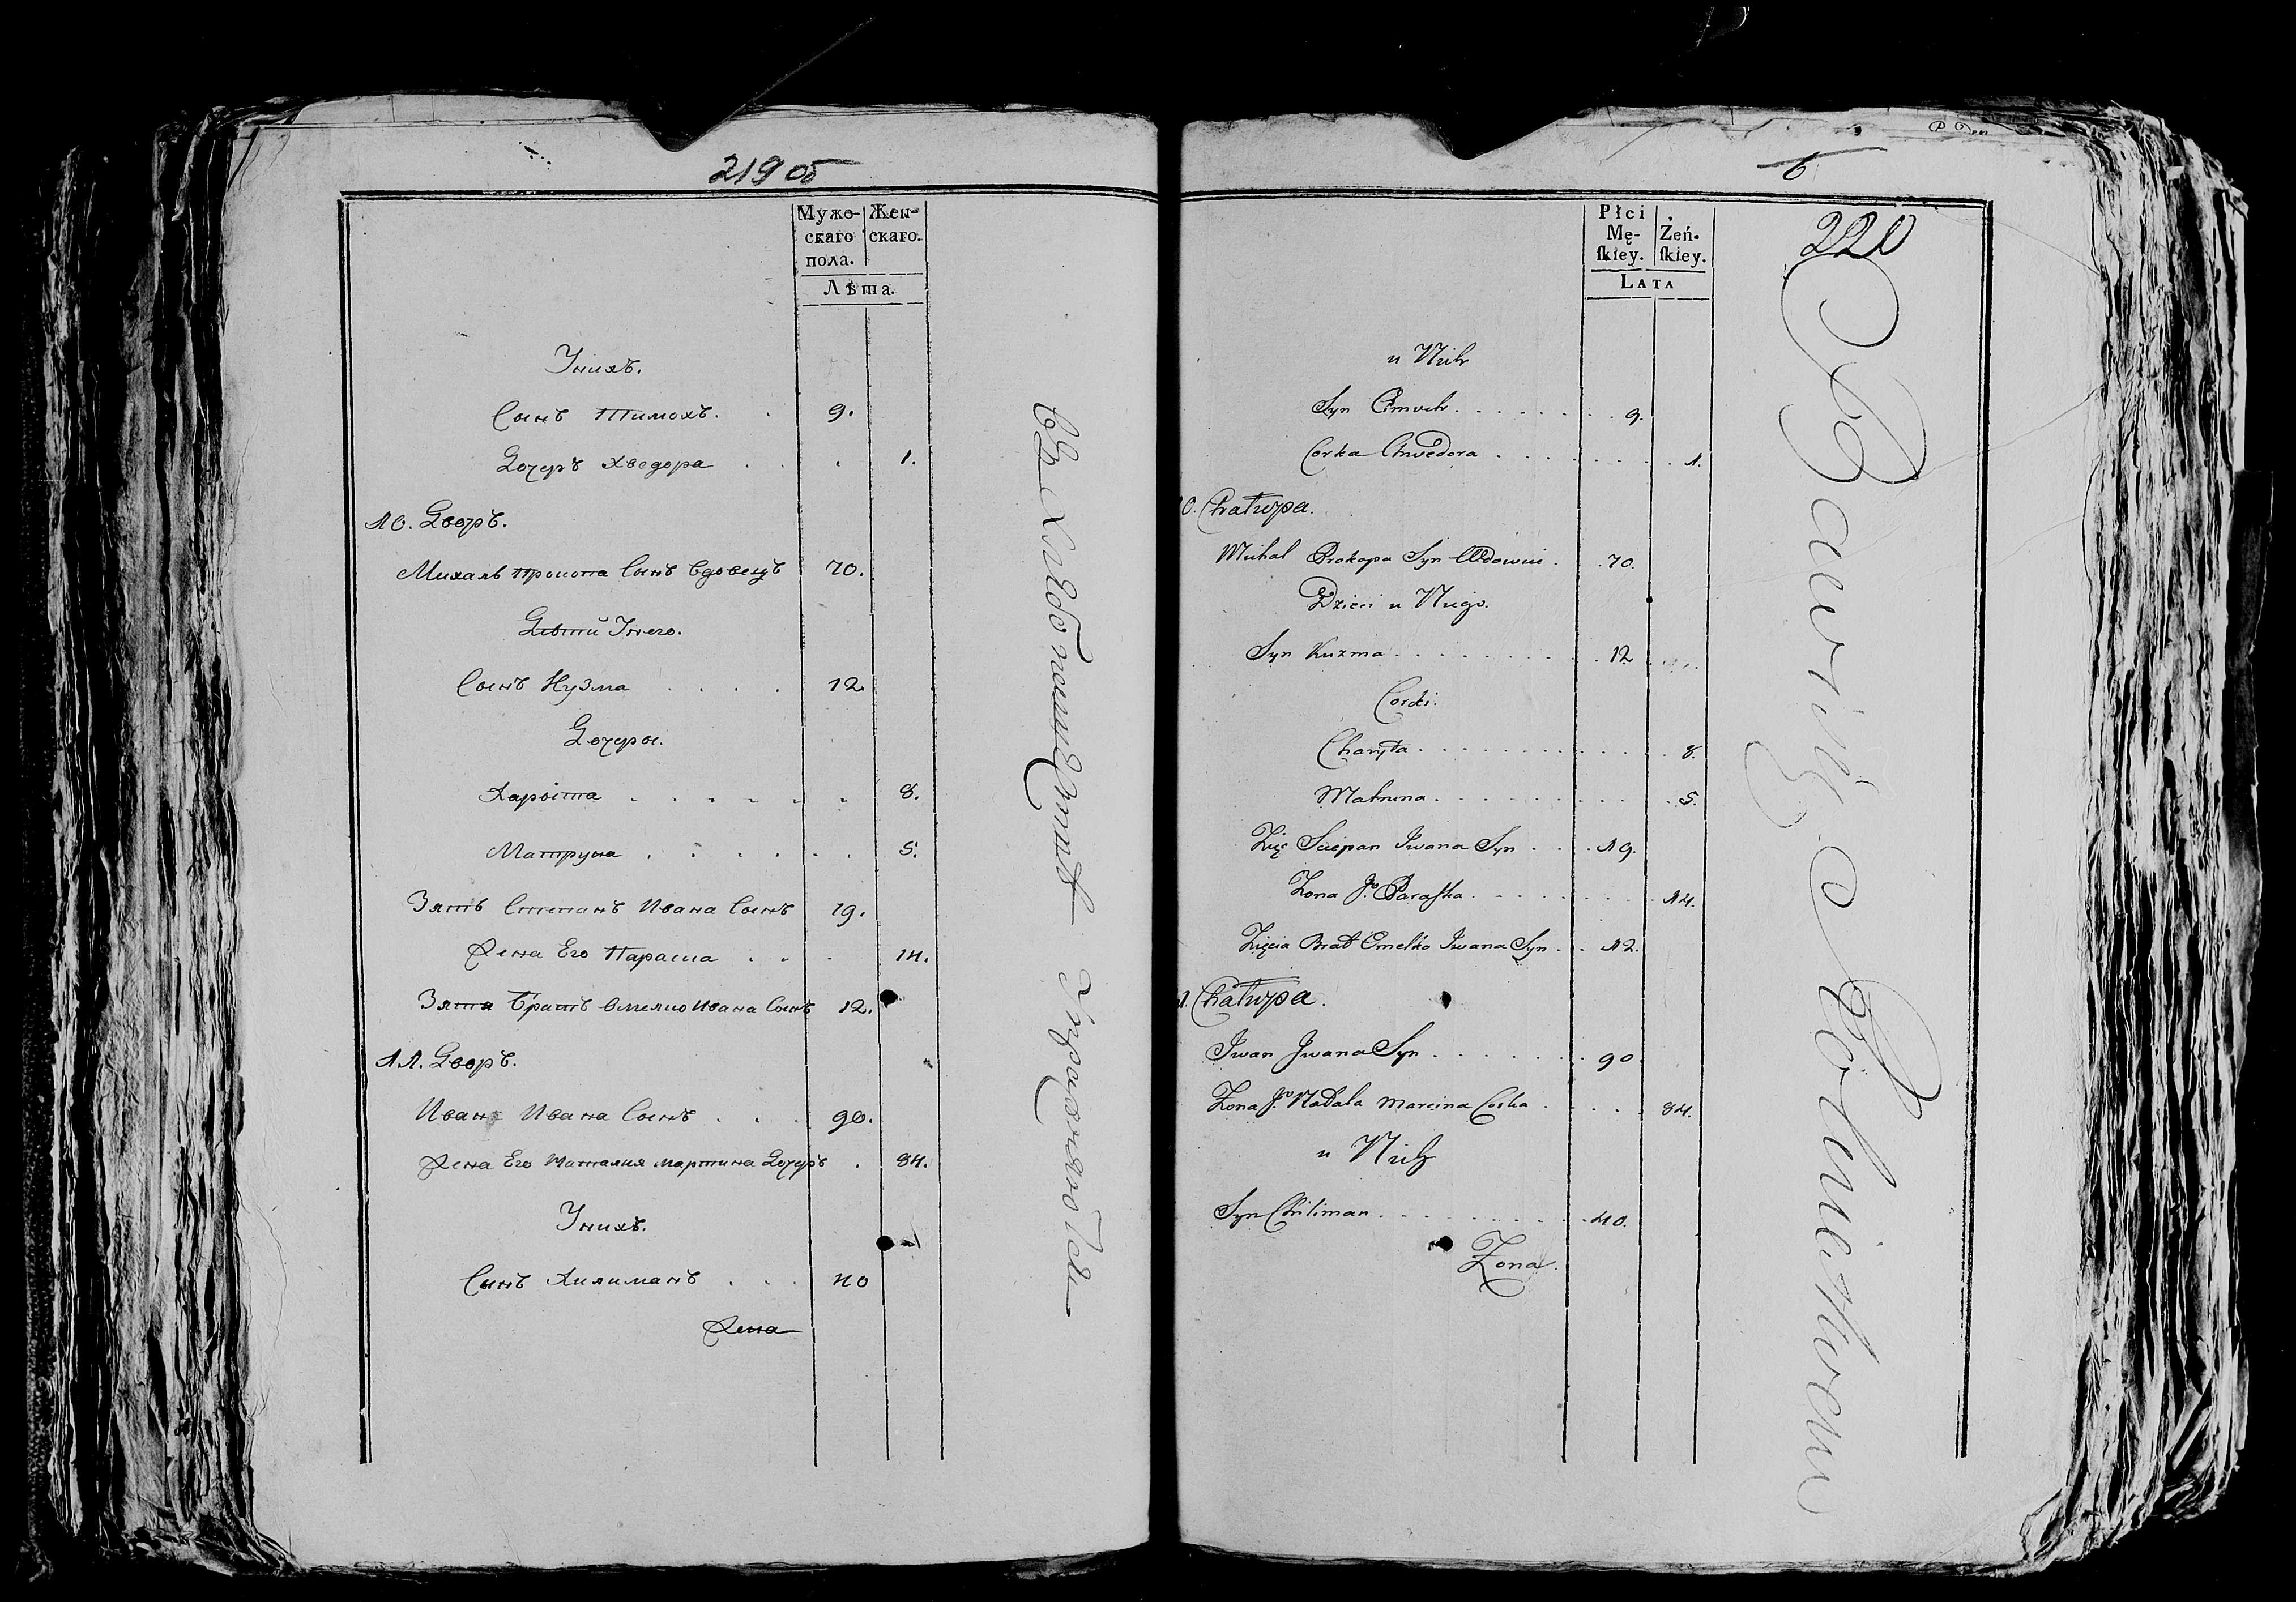 219 об
Муже-
скаго
пола.
Жен-
скаго.
Лѣта.
Унихъ.
Сынъ Тимохъ. 9.
Дочеръ Хведора 1.
10. Дворъ.
Михалъ Прокопа Сынъ вдовецъ 70.
Дѣти Унего.
Сынъ Кузма 12.
Дочеры.
Харыта 8.
Матруна 5.
Зять Степанъ Ивана Сынъ 19.
Жена Его Параска 14.
Зятя Братъ Омелко Ивана Сынъ 12.
11. Дворъ.
Иванъ Ивана Сынъ 90.
Жена Его Наталия Мартина Дочеръ 84.
Унихъ.
Сынъ Хилиманъ 40
Жена
въ Хлѣбопашествѣ Упражняются
6
220
Płci
Mę-
skiey.
Żeń-
skiey.
LATA
u Nich
Syn Cimoch 9.
Corka Chwedora 1.
10. Chałupa.
Michał Prokopa Syn Wdowiec 70.
Dzieci u Niego.
Syn Kuzma 12
Corki.
Charyta 8.
Matruna 5.
Zięć Sciepan Iwana Syn 19.
Zona Jo. Paraska 14.
Zięcia Brat Omelko Iwana Syn 12.
11. Chałupa.
Iwan Iwana Syn 90
Zona Jo. Natala Marcina Corka 84.
u Nich
Syn Chiliman 40.
Zona
Bawią się Rolnictwem